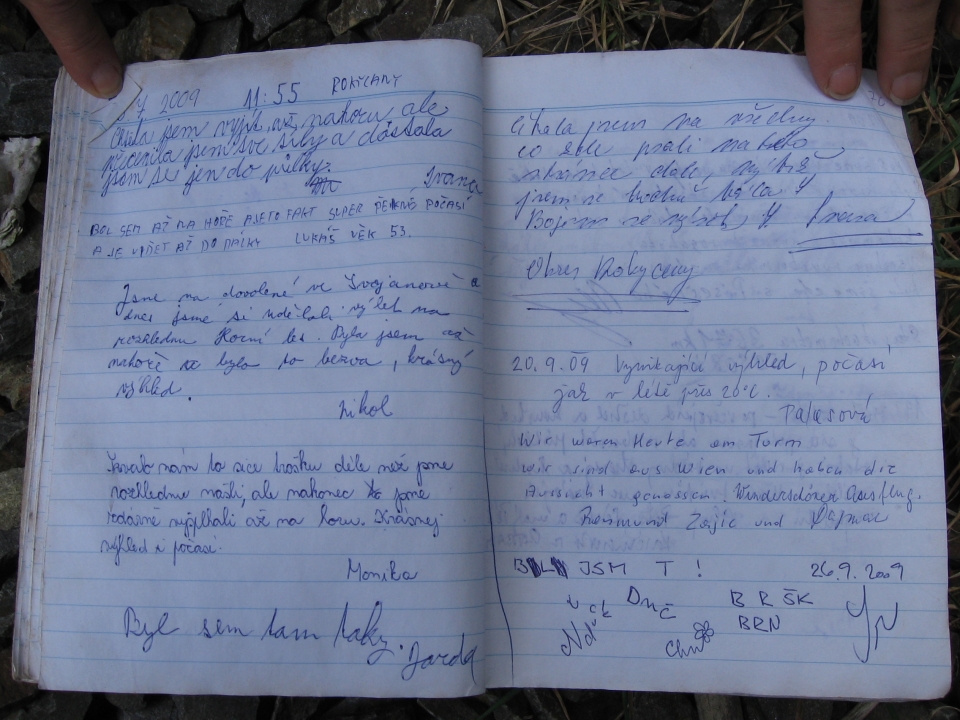 7 2009 11:55 ROKYCANY
jsem vyjít až nahoru ale
přecenila jsem své síly a dostala
jsem se jen do půlky.
Ivana
BOL SEM AŽ NA HOŘE A JE TO FAKT SUPER PĚKNÉ POČASÍ
A JE VIDET AŽ DO DÁLKY LUKÁŠ VĚK 53.
Jsme na dovolené ve Svojanově a
dnes jsme si udělali výlet na
rozhlednu Horní les. Byla jsem až
nahoře a bylo to bezva, krásný
výhled.
Nikol
Trvalo nám to sice trošku déle než jsme
rozhlednu našli, ale nakonec jsme
zdárně vyšplhali až na horu. Krásnej
výhled i počasí.
Monika
Byl sem tam taky.
Jarda
jsem na všechny.
co zde psali na této
stránce dole, nýbrž
jsem se
Bojím se výšek
Okres Rokycany
20.9.09 Vynikající výhled, počasí
jak v létě přes 20°C.
Wir waren Heute am Turm
wir sind aus Wien und haben die
Aussicht genossen. Wunderschöner Ausflug.
und Dagmar
JSM T !
26.9.2009
BRŠK
BRN